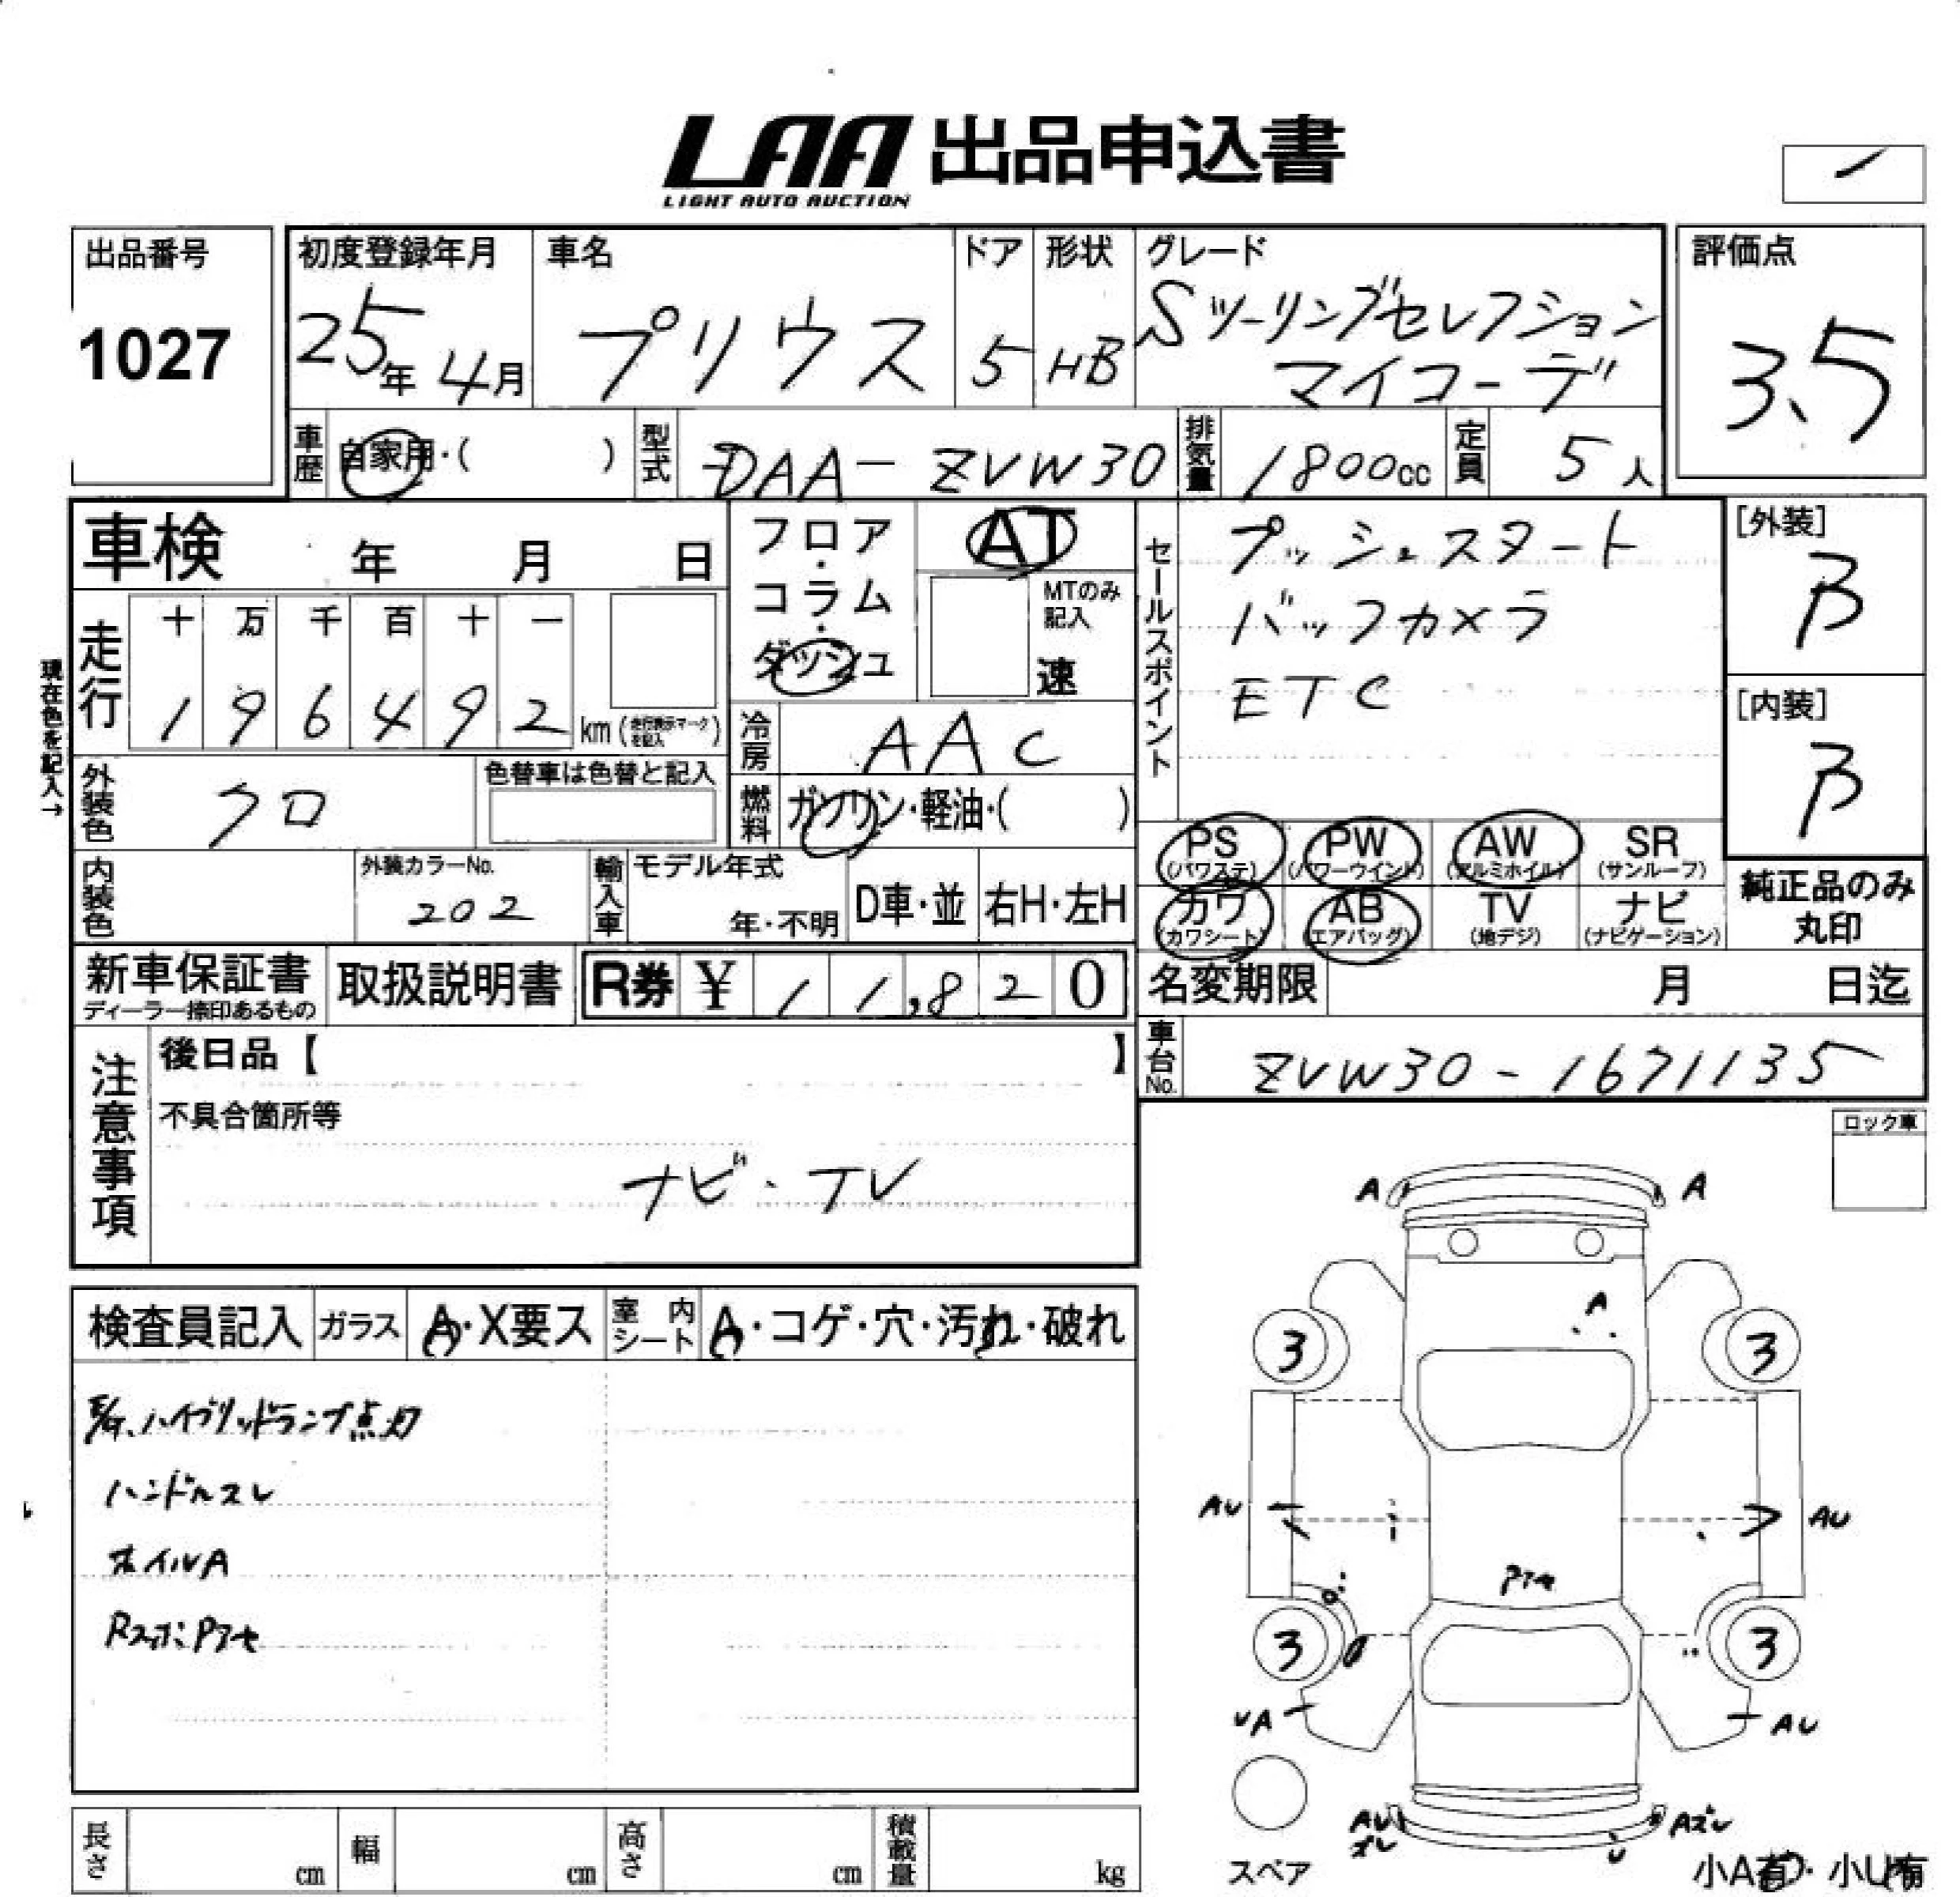 LAA 出品申込書
LIGHT AUTO AUCTION
出品番号
1027
初度登録年月
25年 4月
車名
プリウス
ドア
5
形状
HB
グレード
Sツーリングセレクション
マイコーデ
評価点
3.5
車歴
自家用・( )
型式
DAA-ZVW30
排気量
1800cc
定員
5人
車検 年 月 日
フロア・コラム・ダッシュ
AT
MTのみ
記入
速
セールスポイント
プッシュスタート
バックカメラ
ETC
[外装]
B
[内装]
B
現在色を記入→
走行
十 万 千 百 十 一
1 9 6 4 9 2 km (走行表示マークを記入)
冷房
AAC
外装色
クロ
色替車は色替と記入
燃料
ガソリン・軽油・( )
PS (パワステ)
PW (パワーウインド)
AW (アルミホイル)
SR (サンルーフ)
カワ (カワシート)
AB (エアバッグ)
TV (地デジ)
ナビ (ナビゲーション)
純正品のみ
丸印
内装色
外装カラーNo.
202
輸入車
モデル年式
年・不明
D車・並
右H・左H
新車保証書
ディーラー捺印あるもの
取扱説明書
R券 ¥ 11,820
名変期限 月 日迄
車台No.
ZVW30-1671135
注意事項
後日品【 】
不具合箇所等
ナビ・TV
ロック車
検査員記入
ガラス
A・X要ス
室内シート
A・コゲ・穴・汚れ・破れ
ハイブリッドランプ点灯
ハンドルスレ
ホイルA
RスポP7セ
A
A
A
3
3
AU
AU
P7セ
3
3
UA
AU
AU
ズレ
U
Aズレ
スペア
小A有・小U有
長さ cm
幅 cm
高さ cm
積載量 kg